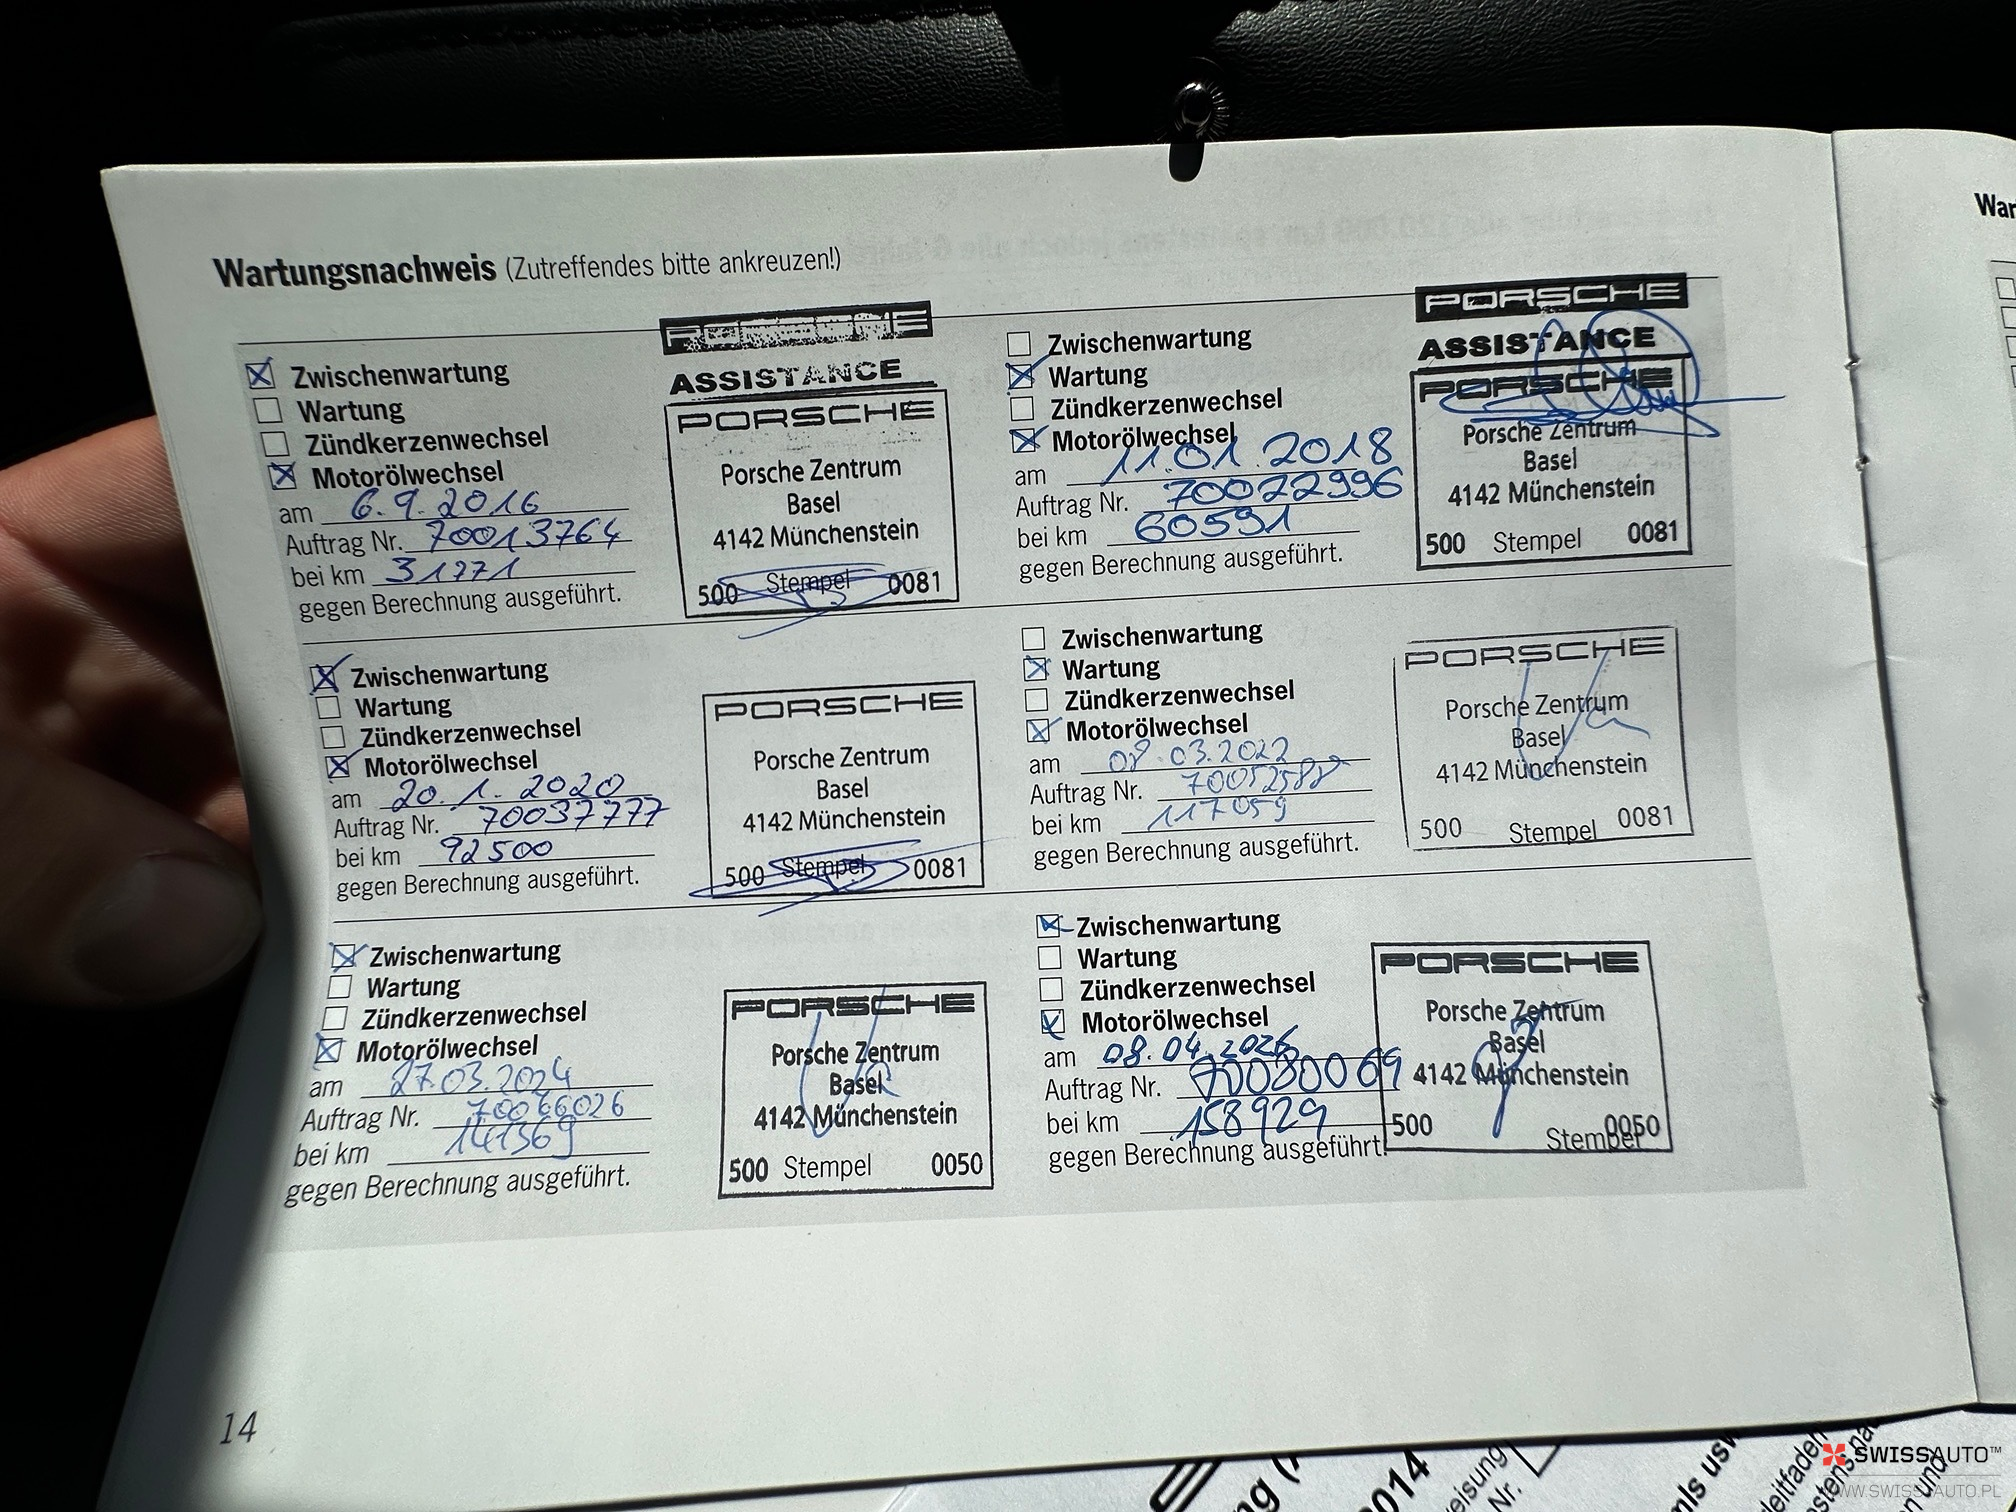 Wartungsnachweis (Zutreffendes bitte ankreuzen!)
Zwischenwartung
Wartung
Zündkerzenwechsel
Motorölwechsel
am 6.9.2016
Auftrag Nr. 70013764
bei km 31271
gegen Berechnung ausgeführt.
PORSCHE
ASSISTANCE
PORSCHE
Porsche Zentrum
Basel
4142 Münchenstein
500 Stempel 0081
Zwischenwartung
Wartung
Zündkerzenwechsel
Motorölwechsel
am 11.01.2018
Auftrag Nr. 70022996
bei km 60591
gegen Berechnung ausgeführt.
PORSCHE
ASSISTANCE
PORSCHE
Porsche Zentrum
Basel
4142 Münchenstein
500 Stempel 0081
Zwischenwartung
Wartung
Zündkerzenwechsel
Motorölwechsel
am 20.1.2020
Auftrag Nr. 70037777
bei km 92500
gegen Berechnung ausgeführt.
PORSCHE
Porsche Zentrum
Basel
4142 Münchenstein
500 Stempel 0081
Zwischenwartung
Wartung
Zündkerzenwechsel
Motorölwechsel
am 08.03.2022
Auftrag Nr. 70052588
bei km 117059
gegen Berechnung ausgeführt.
PORSCHE
Porsche Zentrum
Basel
4142 Münchenstein
500 Stempel 0081
Zwischenwartung
Wartung
Zündkerzenwechsel
Motorölwechsel
am 27.03.2024
Auftrag Nr. 70066026
bei km 141369
gegen Berechnung ausgeführt.
PORSCHE
Porsche Zentrum
Basel
4142 Münchenstein
500 Stempel 0050
Zwischenwartung
Wartung
Zündkerzenwechsel
Motorölwechsel
am 08.04.2026
Auftrag Nr. 70080069
bei km 158929
gegen Berechnung ausgeführt.
PORSCHE
Porsche Zentrum
Basel
4142 Münchenstein
500 Stempel 0050
14
War
SWISSAUTO™
WWW.SWISSAUTO.PL